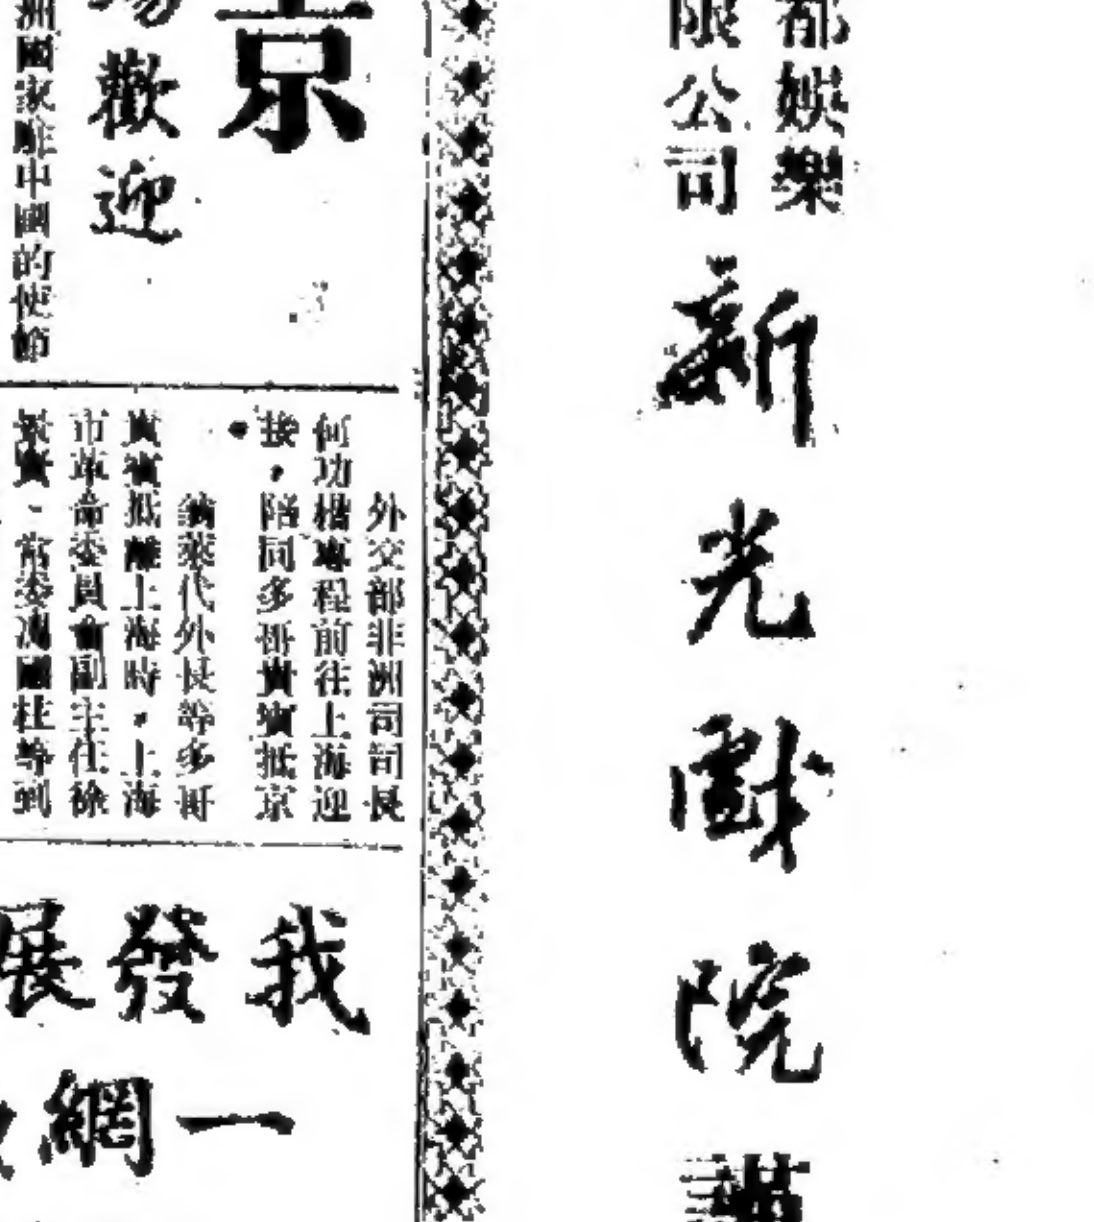 都娛樂
限公司
新光戲院謹
京
場歡迎
洲國家駐中國的使節
外交部非洲司司長
何功楷專程前往上海迎
接，陪同多哥貴賓抵京
。
納萊代外長等多哥
貴賓抵離上海時，上海
市革命委員會副主任徐
景賢、常委馮國柱等到
我發展
一網